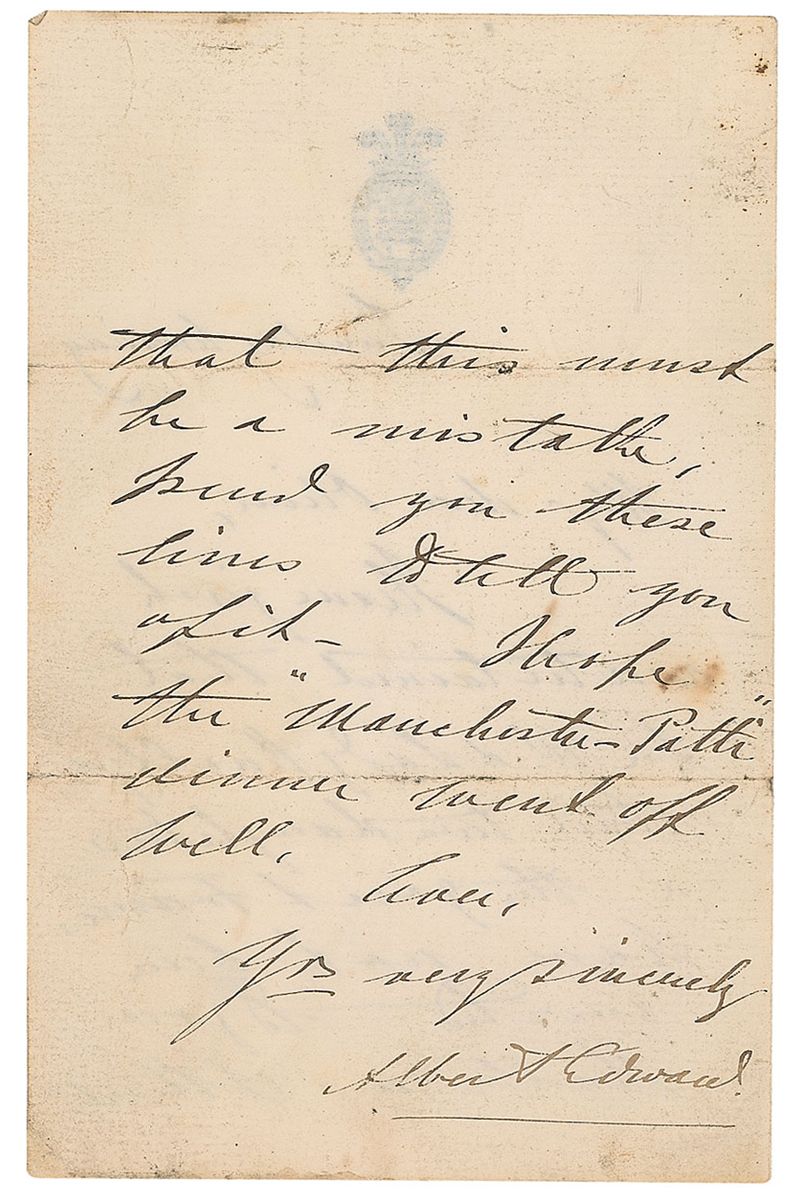 that this must
be a mistake,
I send you these
lines to tell you
of it – I hope
the "Manchester–Patti"
dinner went off
well.
Yrs very sincerely
Albert Edward.